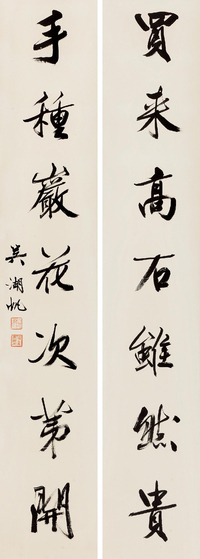 買来高石雖然貴
手種巖花次第開
吳湖帆